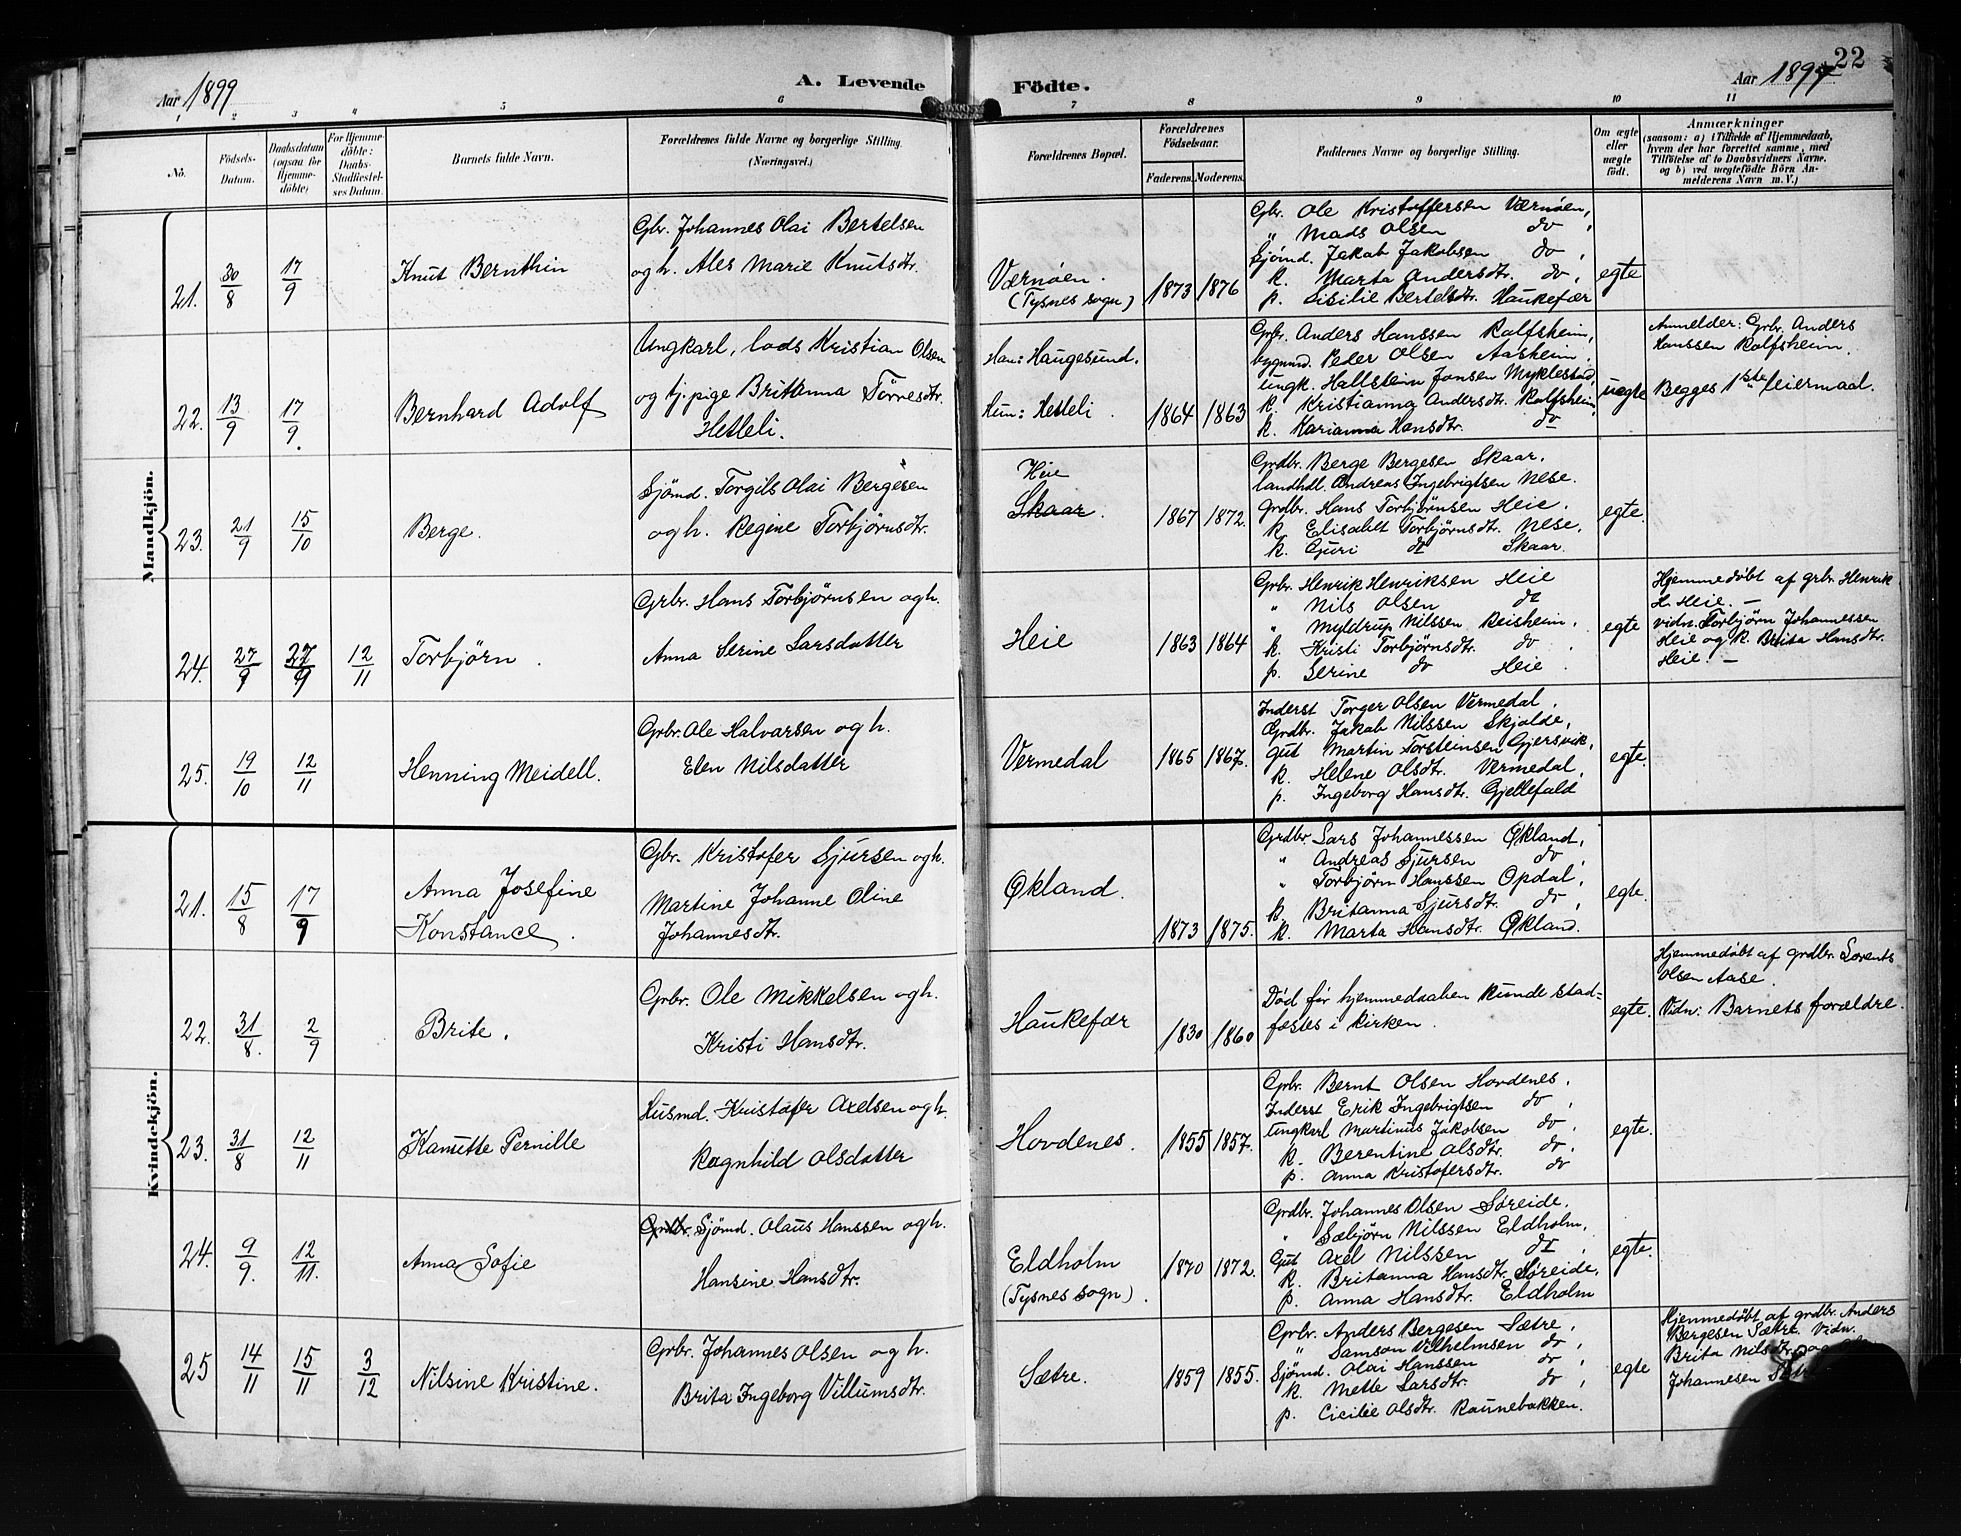 22
Aar 1899
A. Levende
Födte.
Aar 1897
1 2 3 4 5 6 7 8 9 10 11
No.
Födsels-Datum.
Daabsdatum (ogsaa for Hjemme-döbte)
For Hjemme-döbte: Daabs-Stadfæstel-ses Datum.
Barnets fulde Navn.
Forældrenes fulde Navne og borgerlige Stilling.
(Næringsvei.)
Forældrenes Bopæl.
Forældrenes Födselsaar.
Faderens. Moderens.
Faddernes Navne og borgerlige Stilling.
Om ægte eller uægte födt.
Anmærkninger
(saasom: a) i Tilfælde af Hjemmedaab,
hvem der har forrettet samme, med
Tilföielse af to Daabsvidners Navne.
og b) ved uægtefödte Börn An-
melderens Navn m. V.)
Mandkjön.
21. 30/8 17/9 Knut Bernthin
Gbr. Johannes Olai Bertelsen
og h. Ales Marie Knutsdtr.
Værnøen.
(Tysnes sogn)
1873 1876
Gbr. Ole Kristoffersen Værnøen,
" Mads Olsen do,
Sjømd. Jakob Jakobsen do,
k. Marta Andersdtr. do,
p. Sisilie Bertelsdtr. Haukefær
egte
22. 13/9 17/9. Bernhard Adolf
Ungkarl, lods Kristian Olsen
og tj. pige Britanna Törresdtr.
Hetleli.
Han: Haugesund.
Hun: Hetleli.
1864 1863
Grbr. Anders Hanssen Rolfsheim,
bygmd. Peder Olsen Aasheim.
ungk. Hallstein Jonsen Myklestad,
k. Kristianna Andersdtr. Rolfsheim,
k. Karianna Hansdtr. do
uegte
Anmelder: Grbr. Anders
Hanssen Rolfsheim.
Begges 1ste leiermaal.
23. 21/9 15/10 Berge.
Sjömd. Torgils Olai Bergesen
og h. Regine Torbjørnsdtr.
Heie
Skaar.
1867 1872.
Grdbr. Berge Bergesen Skaar,
landhdl. Andreas Ingebrigtsen Nese.
grdbr. Hans Torbjørnsen Heie,
k. Elisabet Torbjørnsdtr. Nese,
k. Guri do Skaar.
egte.
24. 27/9 27/9 12/11 Torbjörn.
Grbr. Hans Torbjørnsen og h.
Anna Serine Larsdatter
Heie
1863 1864
Grbr. Henrik Henriksen Heie
" Nils Olsen do
" Myldrup Nilssen Reisheim,
k. Kristi Torbjørnsdtr. do,
p. Serine do Heie.
egte
Hjemmedøbt af grbr. Henrik
H. Heie. —
vidn. Torbjørn Johannessen
Heie og k. Brita Hansdtr.
Heie. —
25. 19/10 12/11 Henning Meidell.
Grbr. Ole Halvarsen og h.
Elen Nilsdatter
Vermedal
1865 1867.
Inderst Torger Olsen Vermedal,
Grdbr. Jakob Nilssen Skjolde,
gut Martin Torsteinsen Gjersvik,
k. Helene Olsdtr. Vermedal,
p. Ingeborg Hansdtr. Gjellefald
egte.
Kvindekjön.
21. 15/8 17/9 Anna Josefine
Konstance.
Gbr. Kristofer Sjursen og h.
Martine Johanne Oline
Johannesdtr.
Økland.
1873 1875.
Grdbr. Lars Johannessen Økland,
" Andreas Sjursen do,
" Torbjørn Hanssen Opdal,
k. Britanna Sjursdtr. do,
k. Marta Hansdtr. Økland.
egte.
22. 31/8. 2/9 Brite.
Grbr. Ole Mikkelsen og h.
Kristi Hansdtr.
Haukefær
1830 1860
Død før hjemmedaaben kunde stad=
fæstes i kirken.
egte.
Hjemmedøbt af grdbr. Lorents
Olsen Aase.
Vidn: Barnets forældre.
23. 31/8 12/11 Kanutte Pernille
Husmd. Kristofer Axelsen og h.
Ragnhild Olsdatter
Hovdenes.
1855 1857.
Grbr. Bernt Olsen Hovdenes,
Inderst Erik Ingebrigtsen do,
Ungkarl Martinus Jakobsen do,
k. Berentine Olsdtr. do,
p. Anna Kristofersdtr. do
egte.
24. 9/9. 12/11. Anna Sofie
Grdbr. Sjømd. Olaus Hanssen og h.
Hansine Hansdtr.
Eldholm
(Tysnes sogn).
1870 1872.
Grdbr. Johannes Olsen Søreide,
" Sæbjørn Nilssen Eldholm,
Gut Axel Nilssen do,
k. Britanna Hansdtr. Søreide,
p. Anna Hansdtr. Eldholm
egte.
25 14/11 15/11 3/12 Nilsine Kristine.
Grbr. Johannes Olsen og h.
Brita Ingeborg Villumsdtr.
Sætre.
1859 1855.
Grbr. Anders Bergesen Sætre,
" Samson Vilhelmsen do,
Sjømd. Olai Hanssen do,
k. Mette Larsdtr. do,
p. Cicilie Olsdtr. Raunebakken.
egte
Hjemmedøbt af grdbr. Anders
Bergesen Sætre. Vidn.
Brita Nilsdtr. og
Johannesen